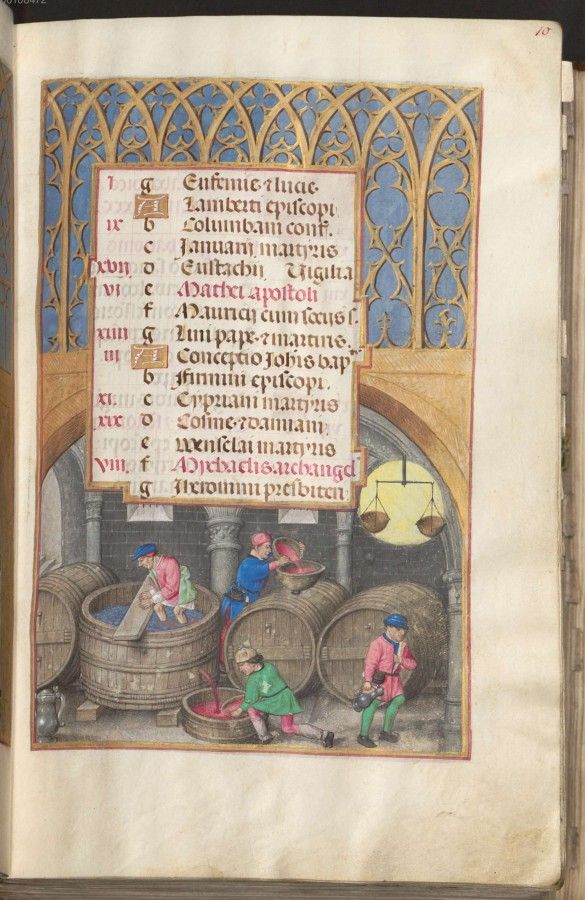 10
I g Eufemie · et lucie ·
A Lamberti episcopi
ix b Columbani conf.
c Januarii martyris
xvii d Eustachii Vigilia
vi e Mathei apostoli
f Mauricii cum sociis s.
xiiii g Lini pape · et martiris.
iii A Conceptio Joh'is bap
b Firmini episcopi.
xi. c Cypriani martyris
xix d Cosme · et damiani
e Wenselai martyris
viii f Michaelis archangel
g Jheronimi presbiteri